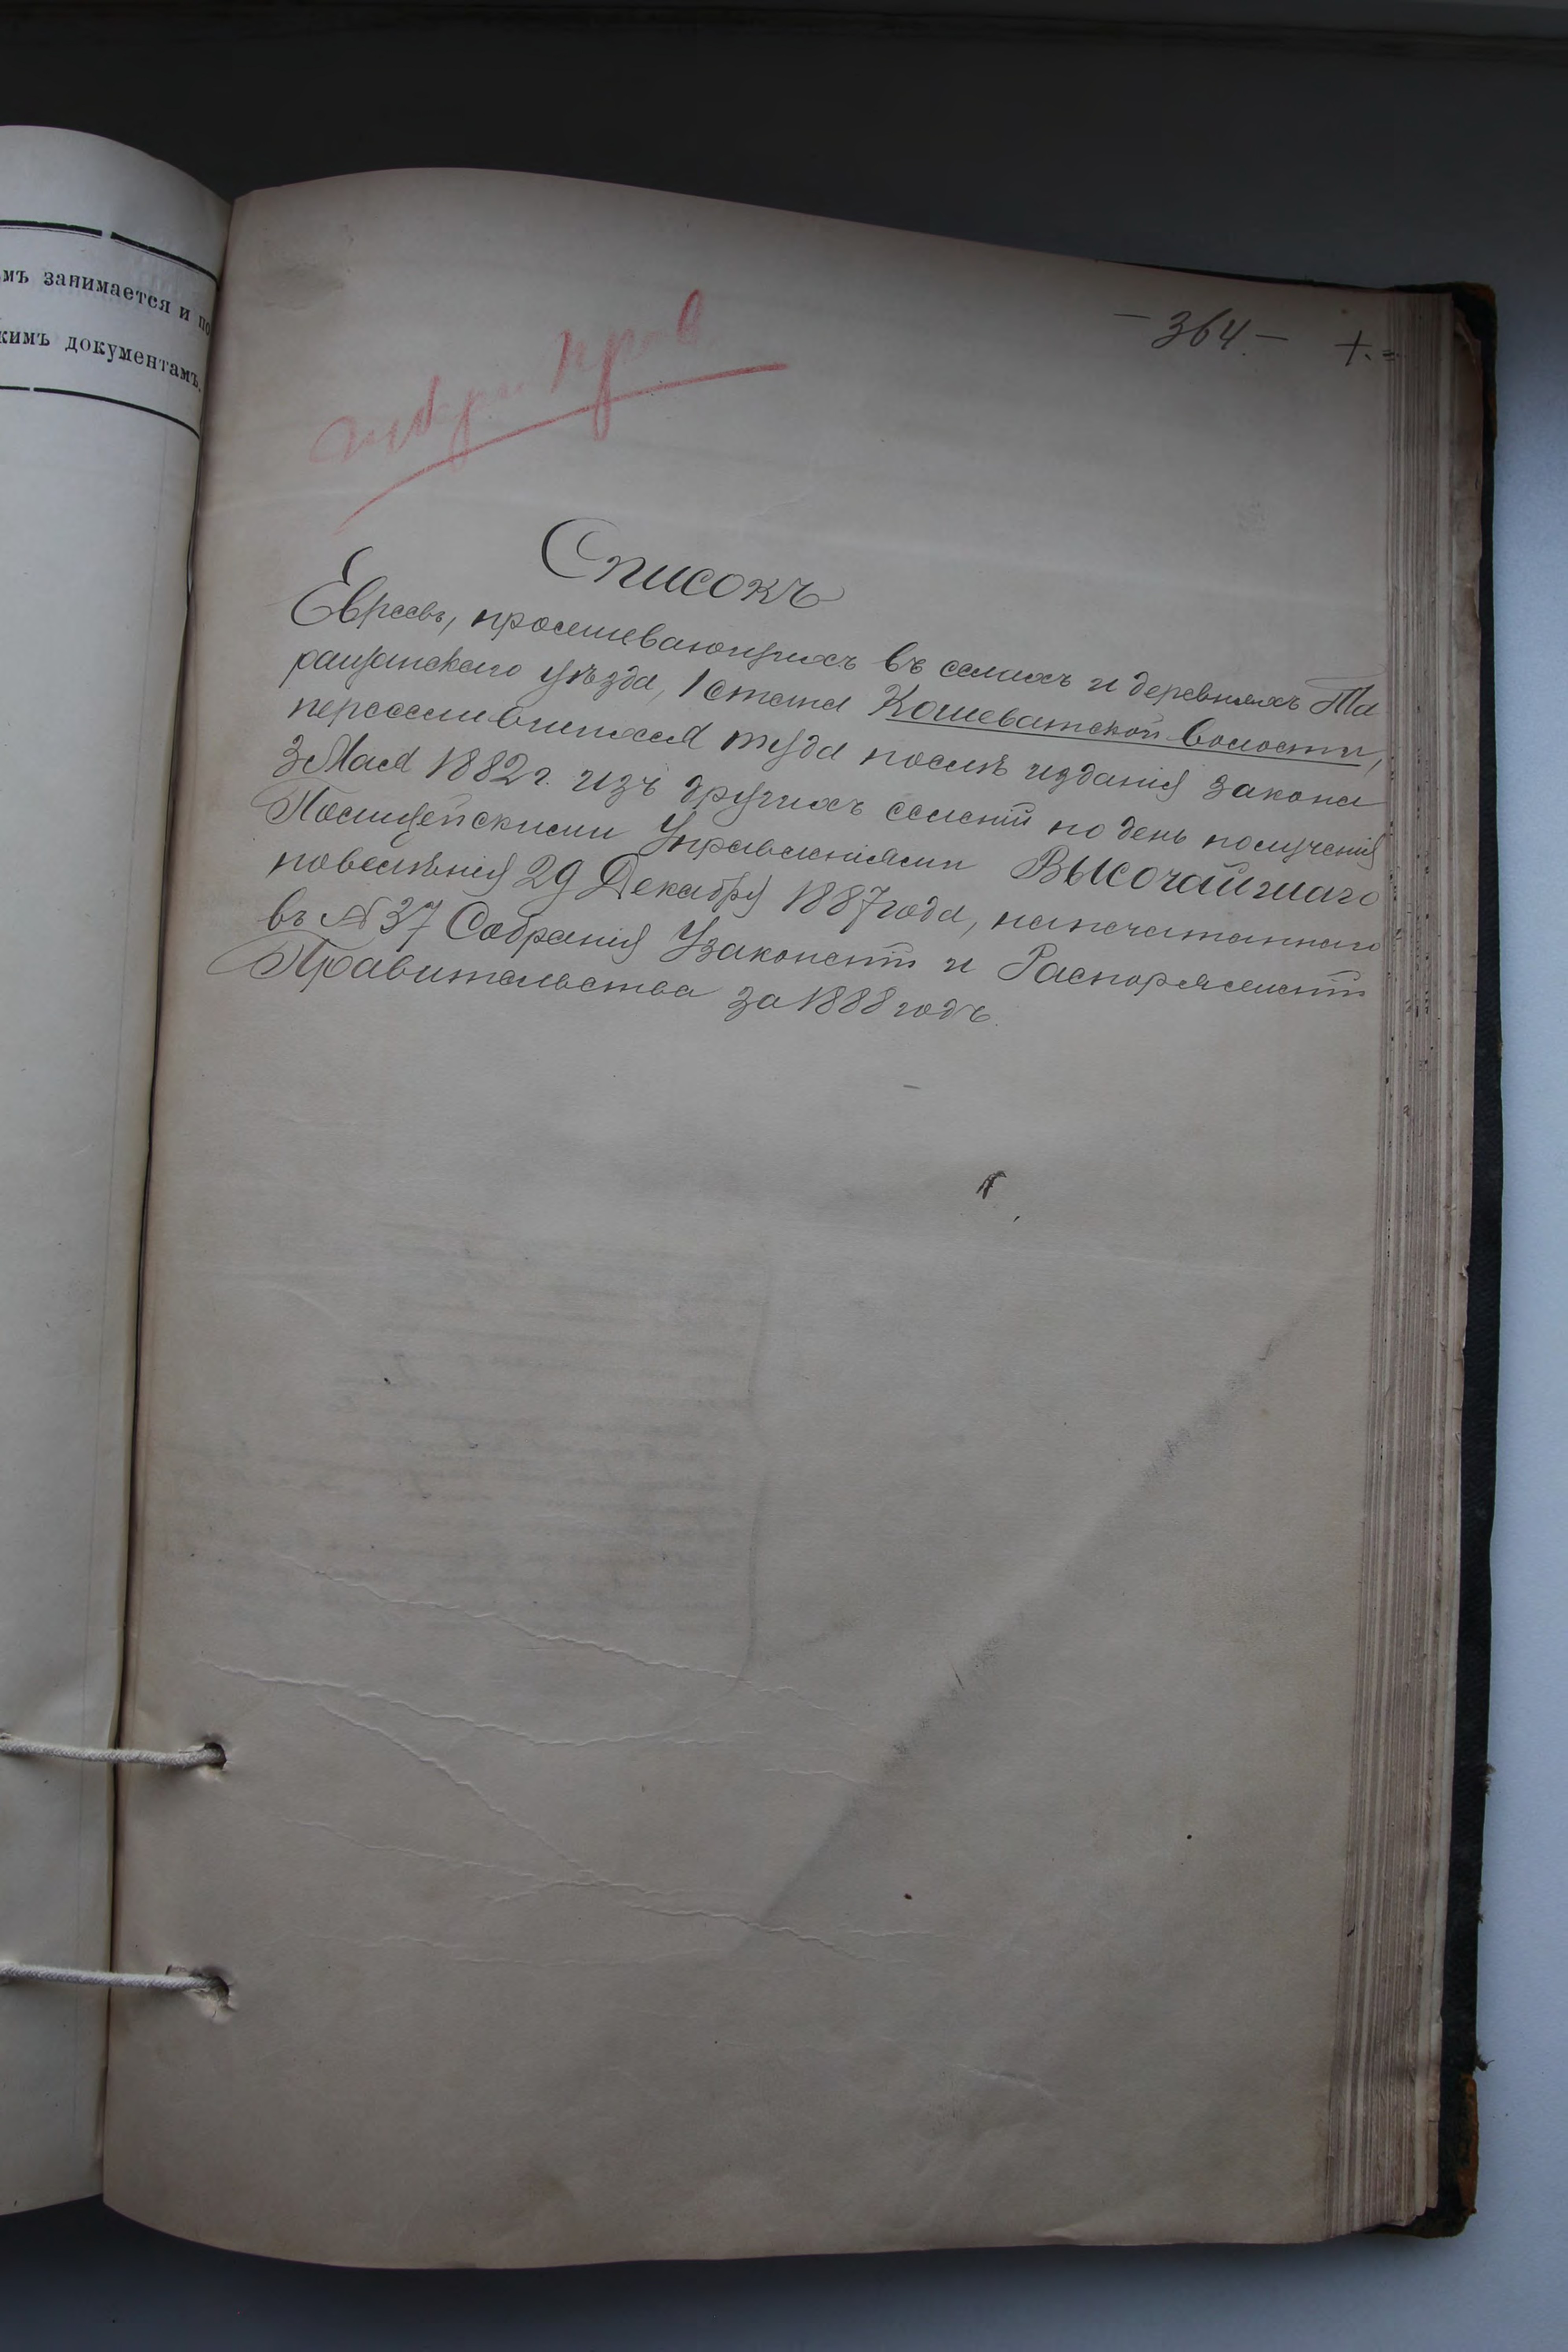 мъ занимается и по
кимъ документамъ.
— 364. — +.=
Списокъ
Евреевъ, проживающихъ въ селахъ и деревняхъ Та
ращанскаго уѣзда, 1 стана Кошеватской волости,
переселившихся туда послѣ изданія закона
3 Мая 1882 г. изъ другихъ селеній по день полученія
Полицейскими Управленіями ВЫСОЧАЙШАГО
повелѣнія 29 Декабря 1887 года, напечатаннаго
въ № 37 Собранія Узаконеній и Распоряженій
Правительства за 1888 годъ.